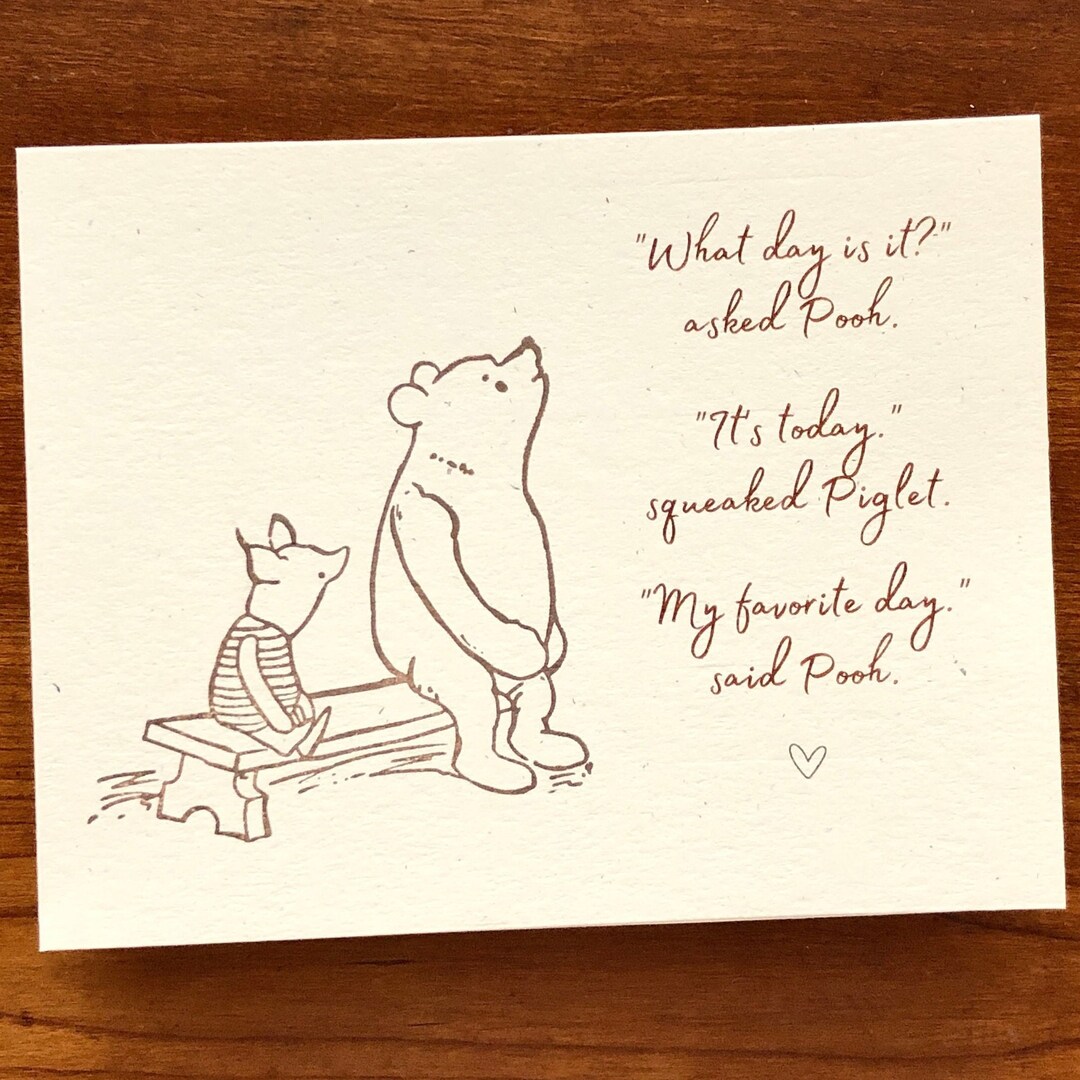 "What day is it?"
asked Pooh.
"It's today."
squeaked Piglet.
"My favorite day."
said Pooh.